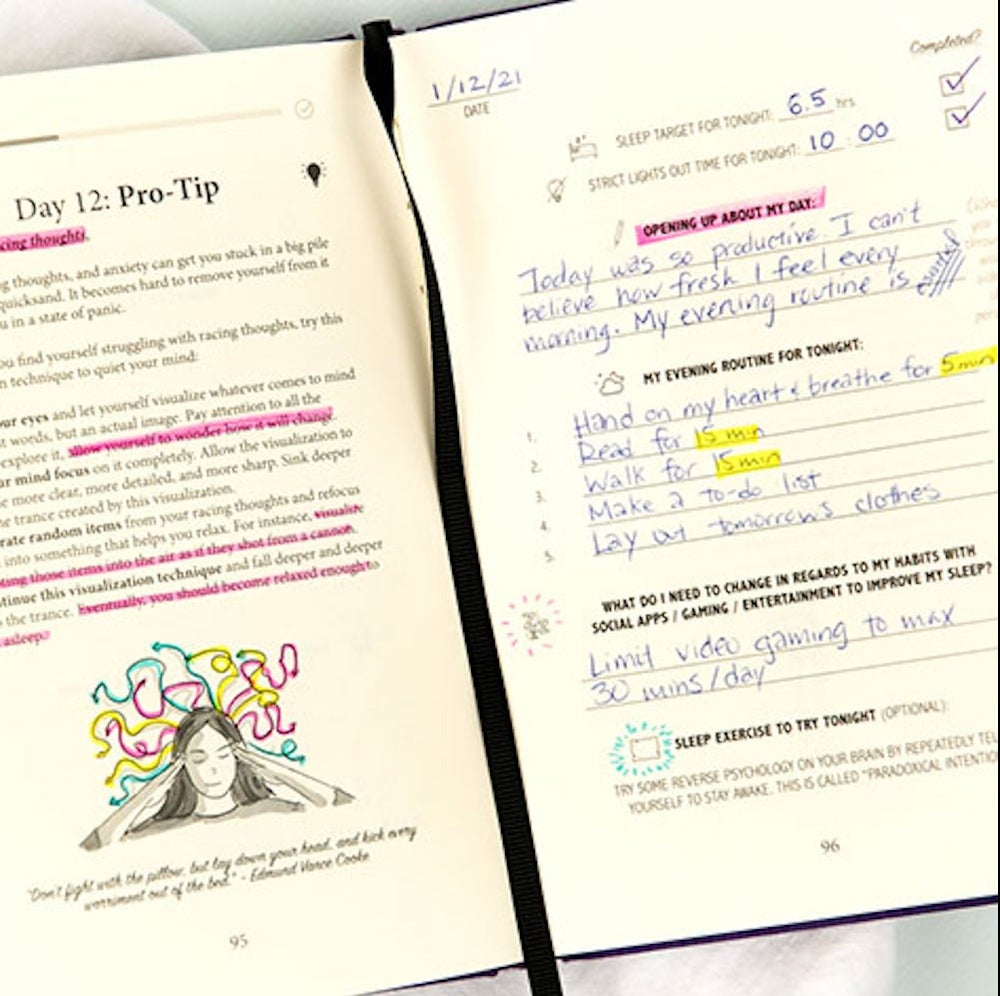 Day 12: Pro-Tip
thoughts.
thoughts, and anxiety can get you stuck in a big pile
quicksand. It becomes hard to remove yourself from it
in a state of panic.
find yourself struggling with racing thoughts, try this
technique to quiet your mind:
eyes and let yourself visualize whatever comes to mind
words, but an actual image. Pay attention to all the
explore it, allow yourself to wonder how it will change.
mind focus on it completely. Allow the visualization to
more clear, more detailed, and more sharp. Sink deeper
trance created by this visualization.
random items from your racing thoughts and refocus
into something that helps you relax. For instance, visualize
those items into the air as if they shot from a cannon.
this visualization technique and fall deeper and deeper
the trance. Eventually, you should become relaxed enough to
asleep.
"Don't fight with the pillow, but lay down your head, and kick every
worriment out of the bed." - Edmund Vance Cooke
95
Completed?
1/12/21
DATE
SLEEP TARGET FOR TONIGHT: 6.5 hrs
STRICT LIGHTS OUT TIME FOR TONIGHT: 10 : 00
OPENING UP ABOUT MY DAY:
Today was so productive. I can't
believe how fresh I feel every
morning. My evening routine is
MY EVENING ROUTINE FOR TONIGHT:
1. Hand on my heart & breathe for 5 min
2. Read for 15 min
3. Walk for 15 min
4. Make a to-do list
5. Lay out tomorrow's clothes
WHAT DO I NEED TO CHANGE IN REGARDS TO MY HABITS WITH
SOCIAL APPS / GAMING / ENTERTAINMENT TO IMPROVE MY SLEEP?
Limit video gaming to max
30 mins/day
SLEEP EXERCISE TO TRY TONIGHT (OPTIONAL):
TRY SOME REVERSE PSYCHOLOGY ON YOUR BRAIN BY REPEATEDLY
YOURSELF TO STAY AWAKE. THIS IS CALLED "PARADOXICAL
96